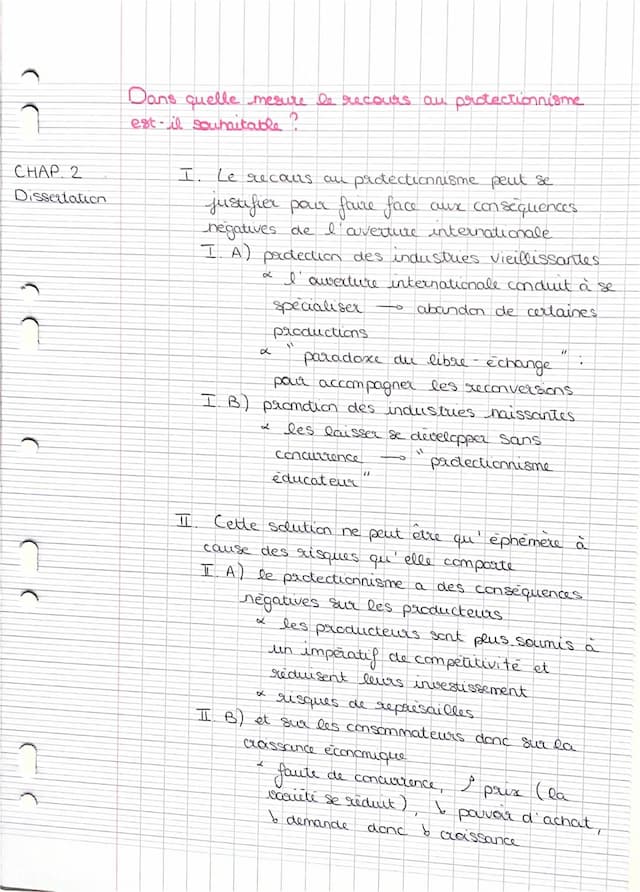 Dans quelle mesure le recours au protectionnisme
est-il souhaitable ?
CHAP. 2
Dissertation
I. Le recours au protectionnisme peut se
justifier pour faire face aux conséquences
négatives de l'ouverture internationale
I. A) protection des industries vieillissantes
α l'ouverture internationale conduit à se
spécialiser → abandon de certaines
productions
α "paradoxe du libre-échange" :
pour accompagner les reconversions
I. B) promotion des industries naissantes
α les laisser se développer sans
concurrence → "protectionnisme
éducateur"
II. Cette solution ne peut être qu'éphémère à
cause des risques qu'elle comporte
II. A) le protectionnisme a des conséquences
négatives sur les producteurs
α les producteurs sont plus soumis à
un impératif de compétitivité et
réduisent leurs investissement
α risques de représailles
II. B) et sur les consommateurs donc sur la
croissance économique
α faute de concurrence, ↗ prix (la
se réduit), ↘ pouvoir d'achat,
↘ demande donc ↘ croissance